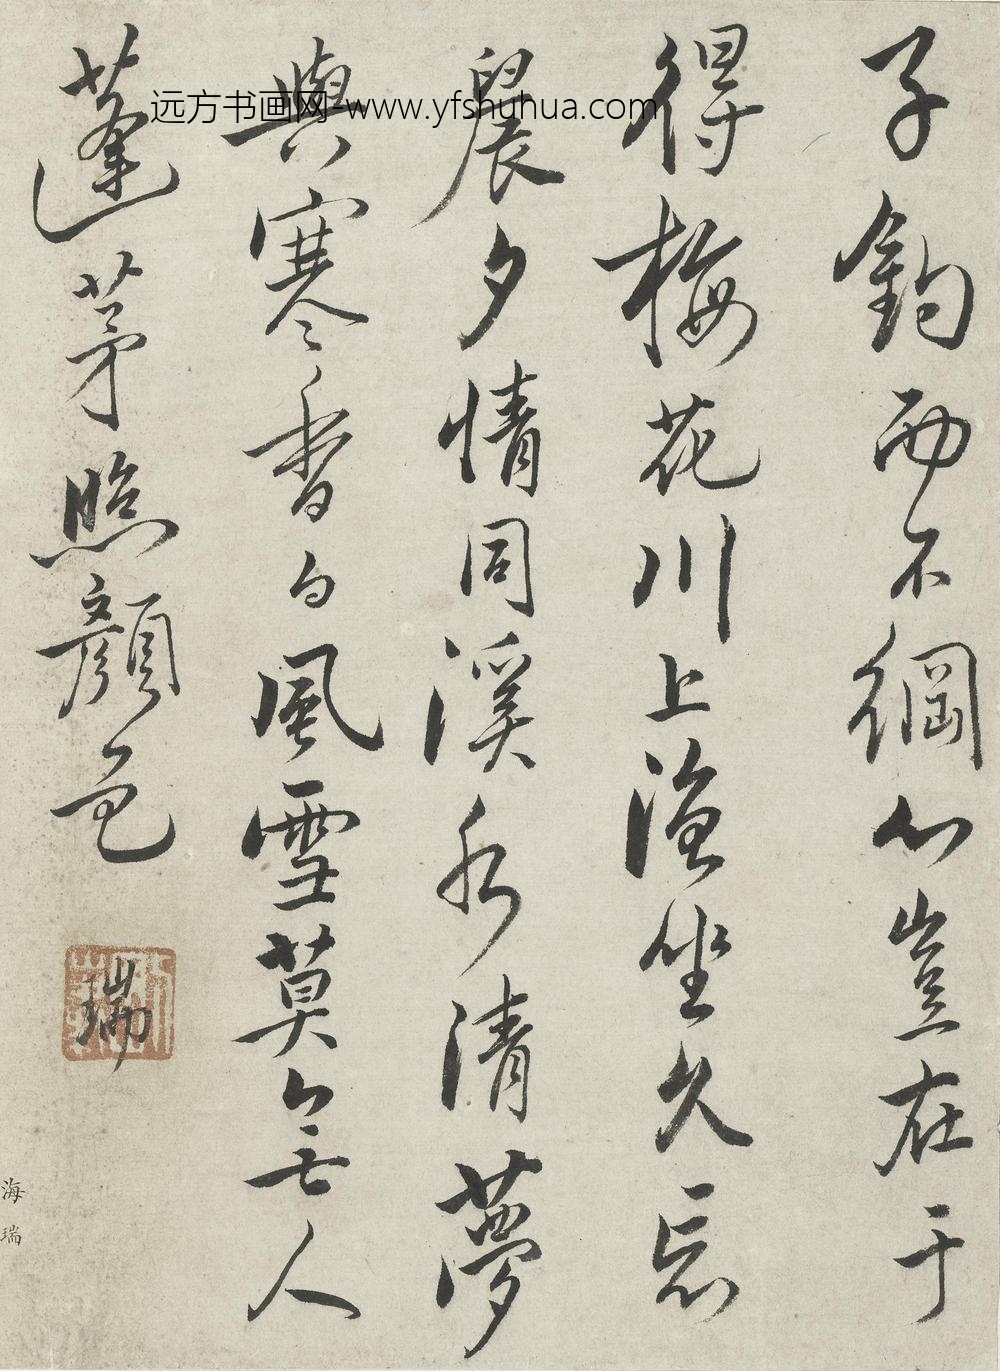 远方书画网-www.yfshuhua.com
子釣而不綱心豈在于
得梅花川上漁坐久忘
晨夕情同溪水清夢
與寒香白風雪莫無人
蓬茅照顏色
瑞
海瑞